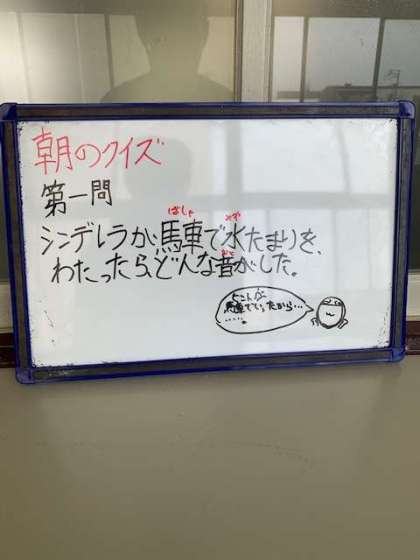 朝のクイズ
第一問
シンデレラが馬車で水たまりを、
わたったら、どんな音がした。
ばしゃ
みず
おと
馬車でとったから・・・